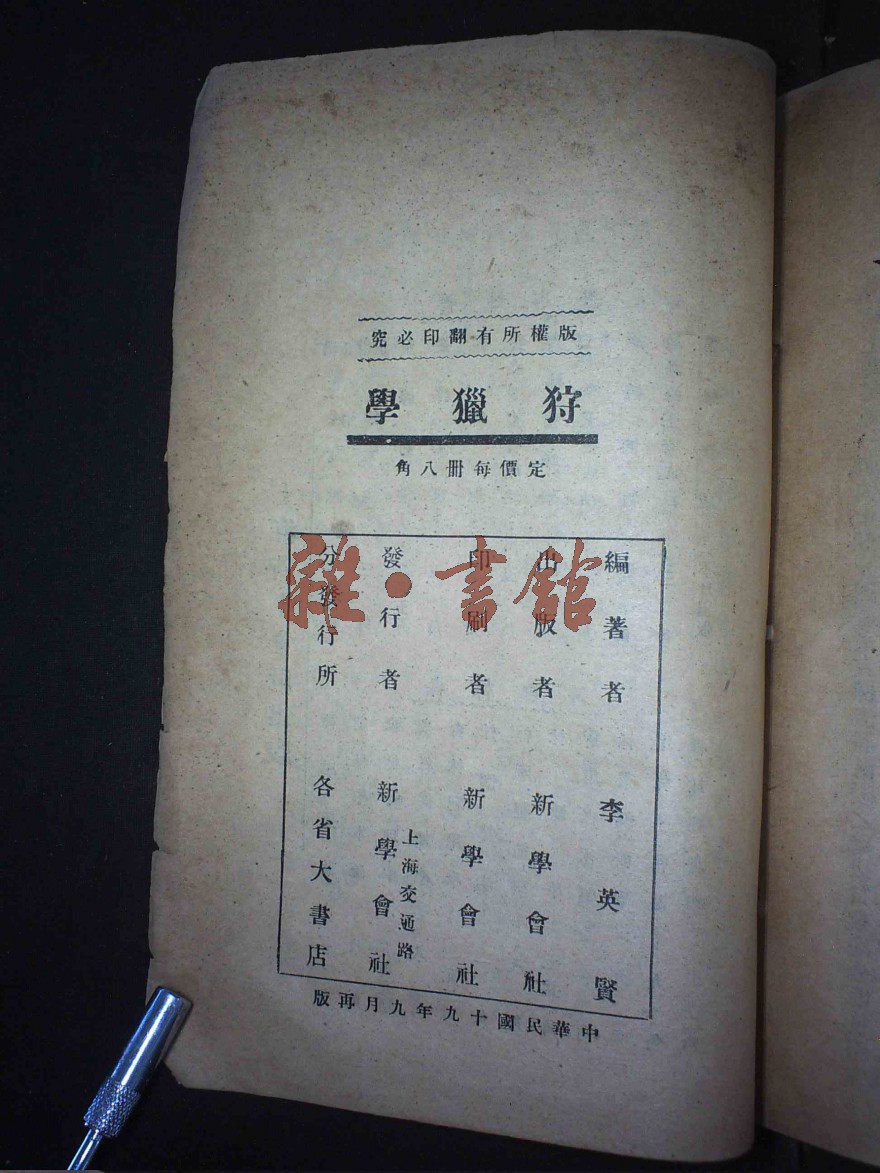 版權所有翻印必究
狩獵學
定價每冊八角
編著者 李英賢
出版者 新學會社
印刷者 新學會社
上海交通路
發行者 新學會社
分發行所 各省大書店
中華民國十九年九月再版
雜·書館